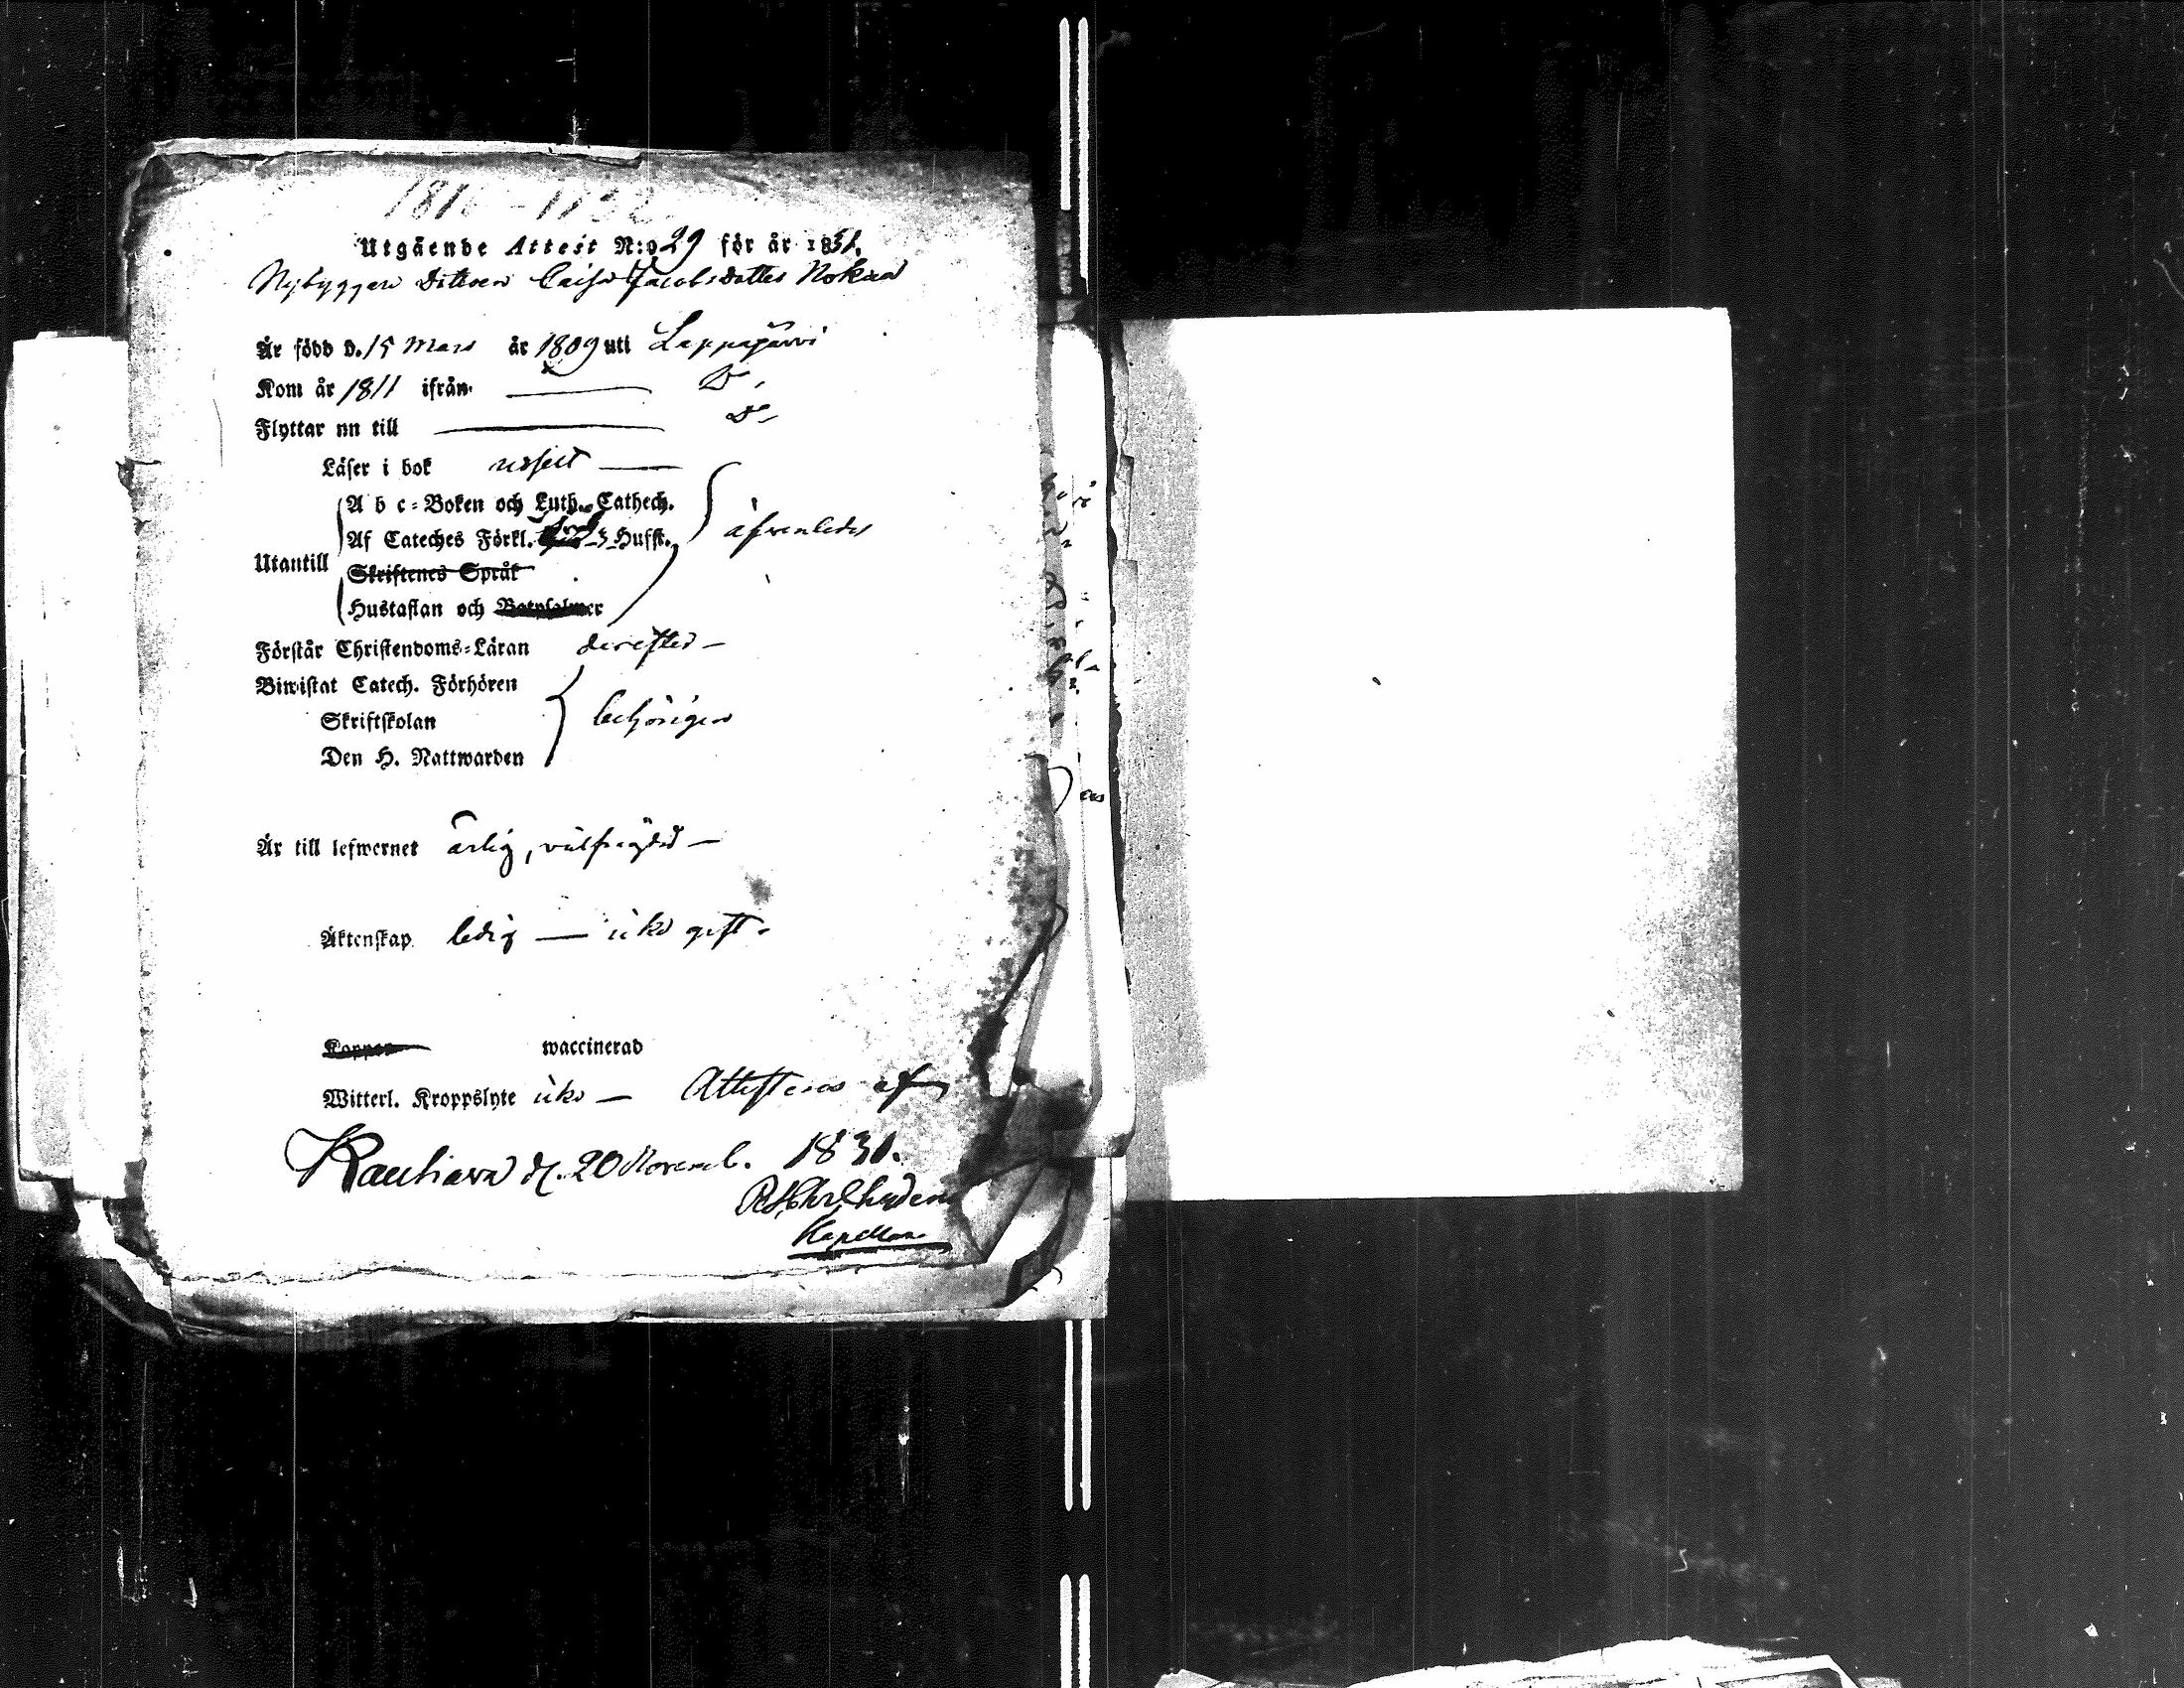 Utgående Attest N:o 29 för år 1831.
Nybyggare Dottren Caisa Jacobsdotter
Är född d. 15 Mars år 1809 uti Lappajärvi
Kom år 1811 ifrån D:o
Flyttar nn till D:o
Läser i bok
A b c-Boken och Luth. Cathech.
Af Cateches Förkl. Hufst. äfvenledes
Utantill
Skriftenes Språk
Hustaflan och Botpsalmer
Förstår Christendoms-Läran derefter —
Biwistat Catech. Förhören
Skriftskolan behörigen
Den H. Nattwarden
Är till lefwernet ärlig, välfrägdad —
Äktenskap ledig — icke gift.
Koppor waccinerad
Witterl. Kroppslyte icke — Attesteras af
Kauhava d. 20 Novemb. 1831.
Kapellan